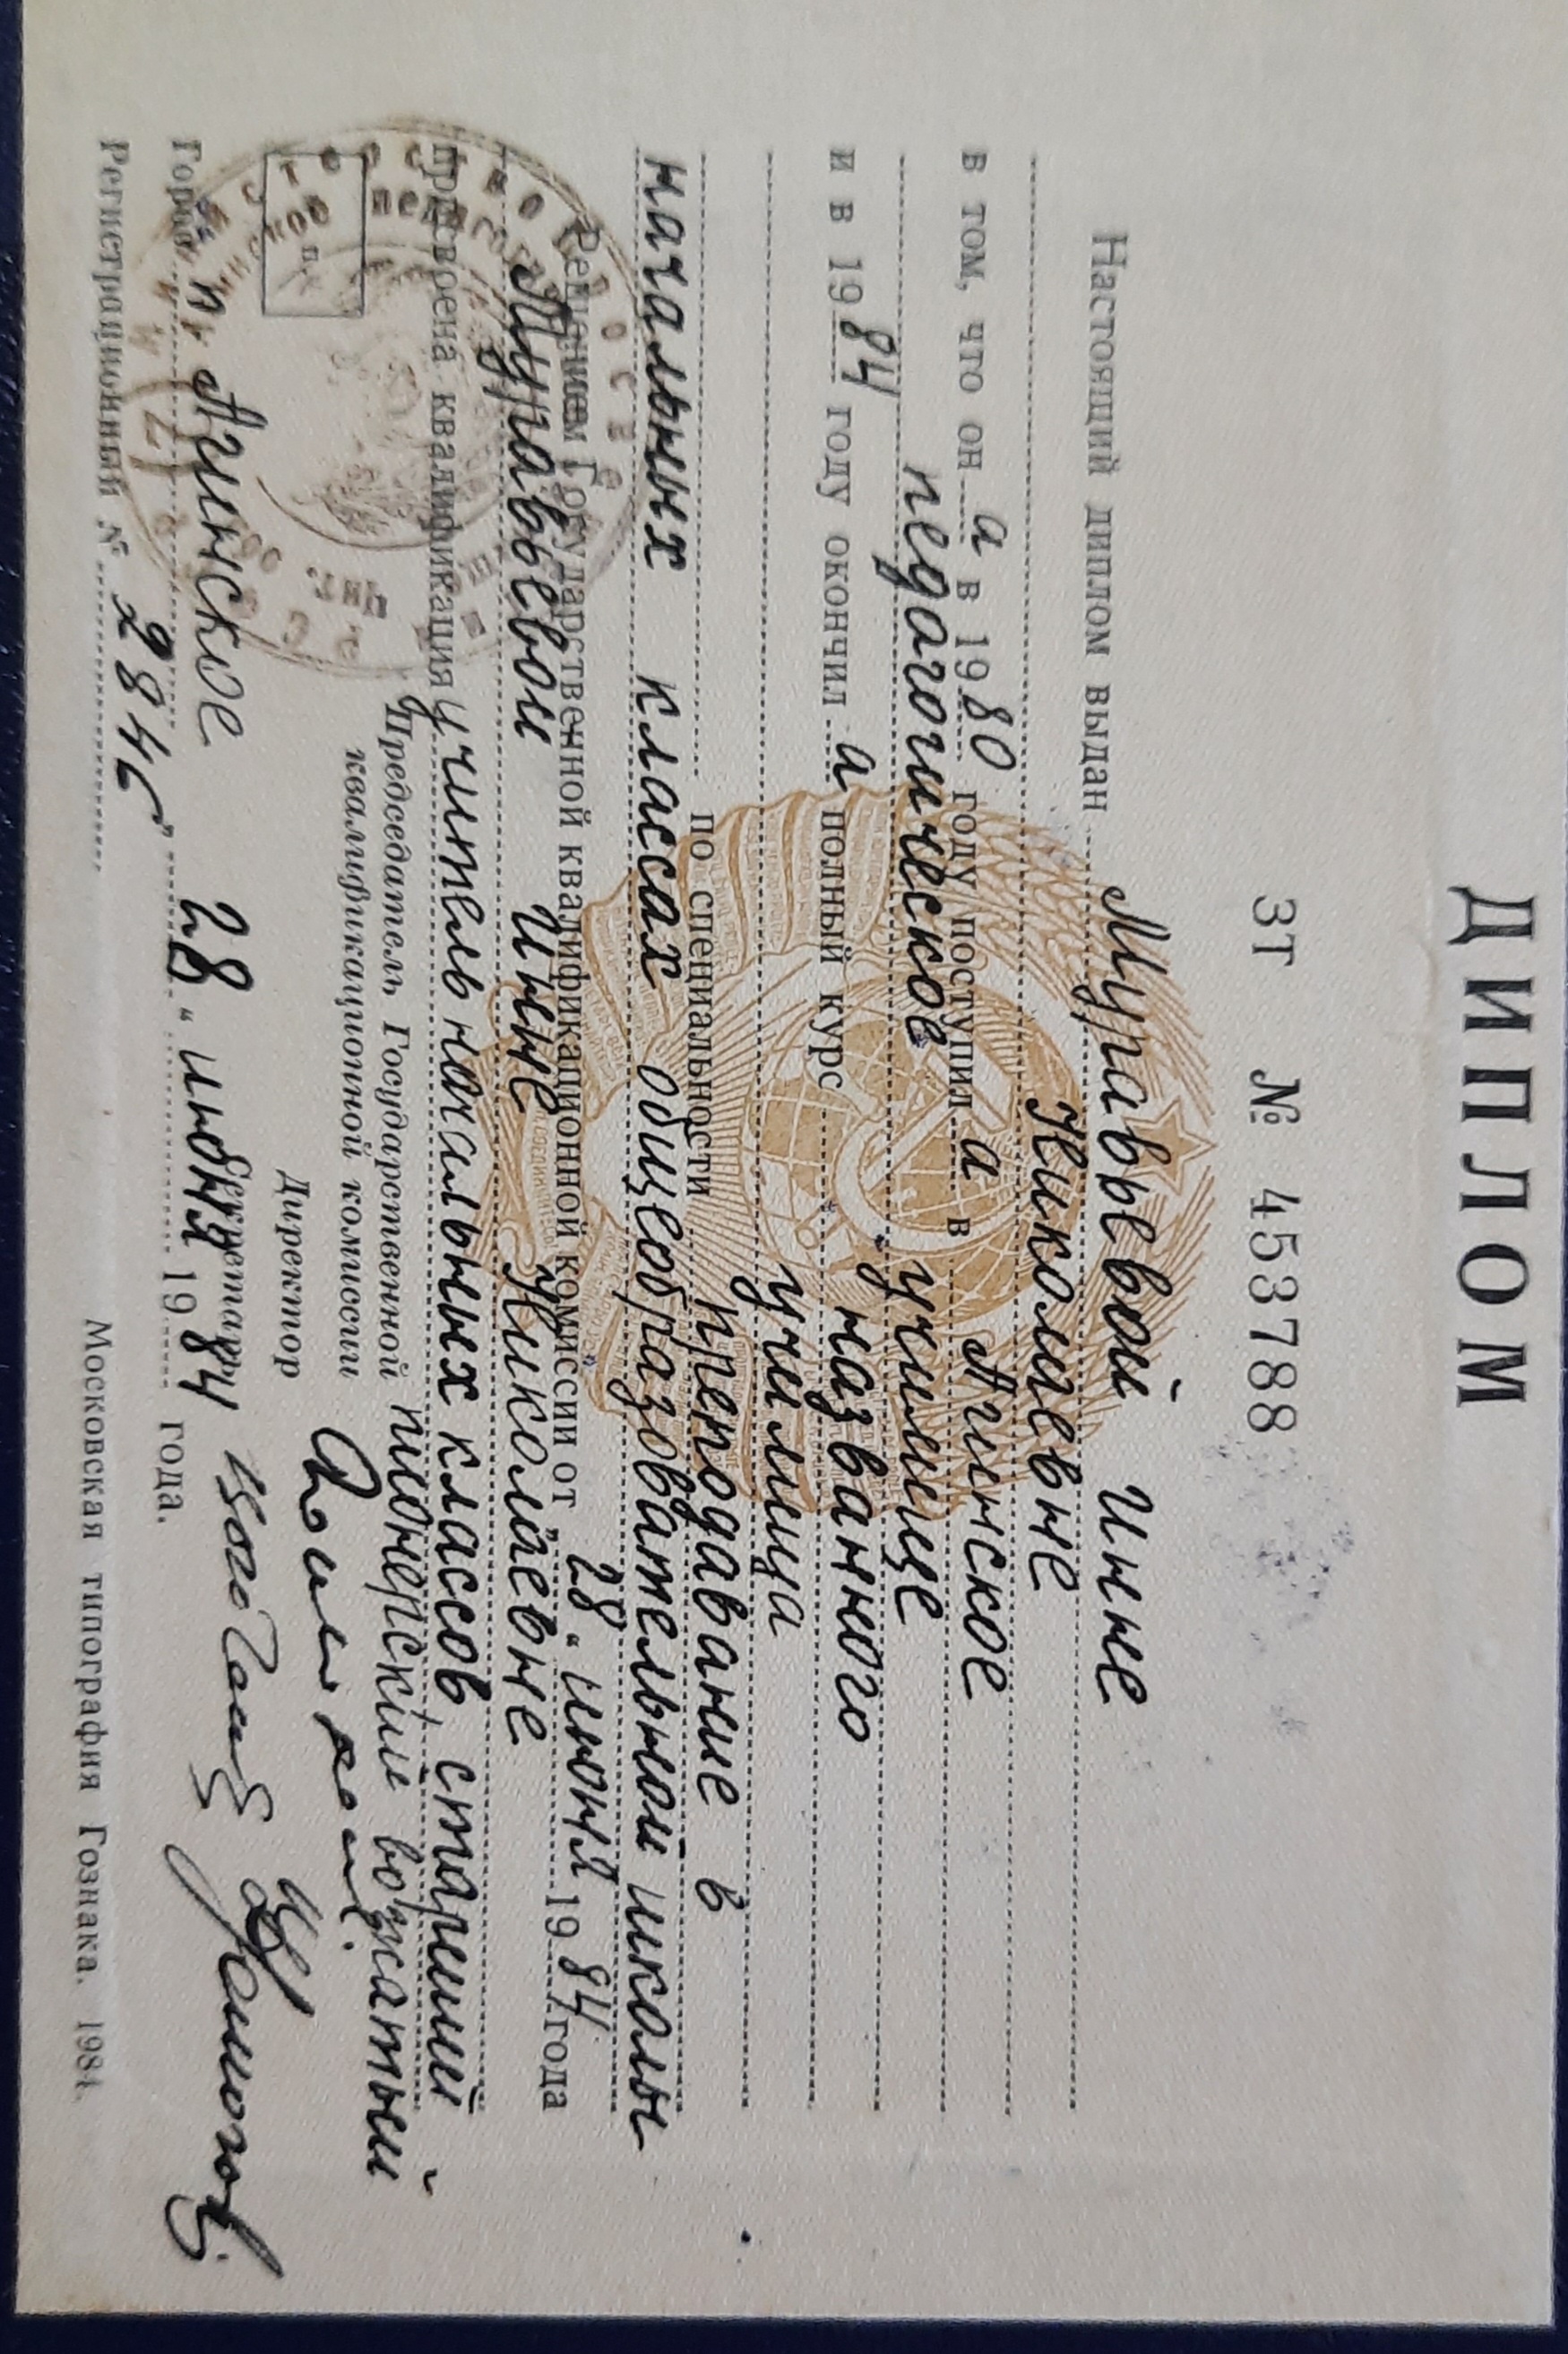 ДИПЛОМ
ЗТ № 453788
Настоящий диплом выдан Муравьевой Инне
Николаевне
в том, что он а в 1980 году поступил а в Агинское
педагогическое училище
и в 1984 году окончил а полный курс названного
училища
по специальности преподавание в
начальных классах общеобразовательной школы
Решением Государственной квалификационной комиссии от 28 " июня 1984 года
Муравьевой Инне Николаевне
присвоена квалификация учитель начальных классов, старший
пионерский вожатый
Председатель Государственной
квалификационной комиссии
Директор
Секретарь
Город п. Агинское " 28 " июня 1984 года.
Регистрационный №
Московская типография Гознака. 1984.